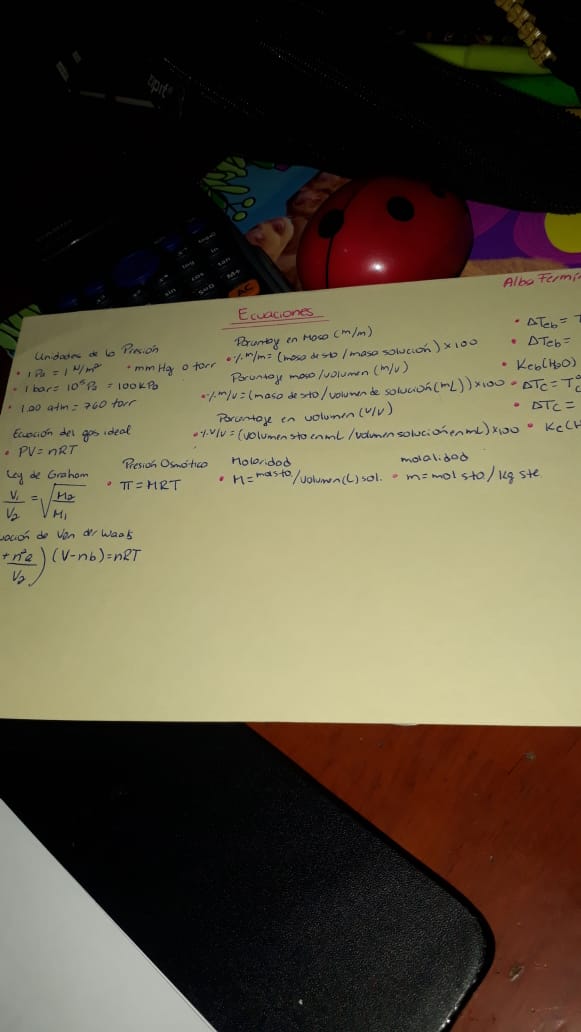 Ecuaciones
Alba Fermí
Unidades de la Presión
• 1 Pa = 1 N/m² • mmHg o torr
• 1 bar = 10⁵ Pa = 100 kPa
• 1.00 atm = 760 torr
Ecuación del gas ideal
• PV = nRT
Ley de Graham
V₁/V₂ = √M₂/M₁
uación de Van der Waals
+ n²a/V₂) (V-nb) = nRT
Presión Osmótica
• π = MRT
Porcentaje en Masa (m/m)
• %m/m = (masa de sto / masa solución) x 100
Porcentaje masa/volumen (m/v)
• %m/v = (masa de sto / volumen de solución (mL)) x 100
Porcentaje en volumen (v/v)
• %v/v = (volumen sto en mL / volumen solución en mL) x 100
Molaridad
• M = molsto / volumen (L) sol.
molalidad
• m = mol sto / kg ste
• ΔTeb = T
• ΔTeb =
• Keb (H₂O)
• ΔTc = T°c
• ΔTc =
• Kc (H
AC
M+
cos
tan
sin
ln